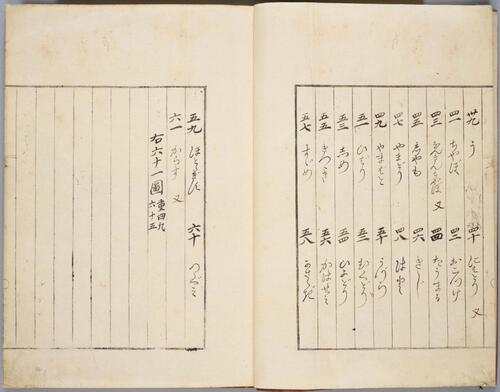 卅九 う 四十 にわとり 又
四一 ちやぼ 四二 おごつけ
四三 又 四四 たうまる
四五 しやも 四六 きじ
四七 やまどり 四八 はと
四九 やまばと 五十 うづら
五一 ひばり 五二 むくどり
五三 しめ 五四 ひよどり
五五 きつゝき 五六 かはせミ
五七 すゞめ 五八
五九 ほとゝぎす 六十 つぐミ
六一 からす 又
右六十一圖 重四九 六十五